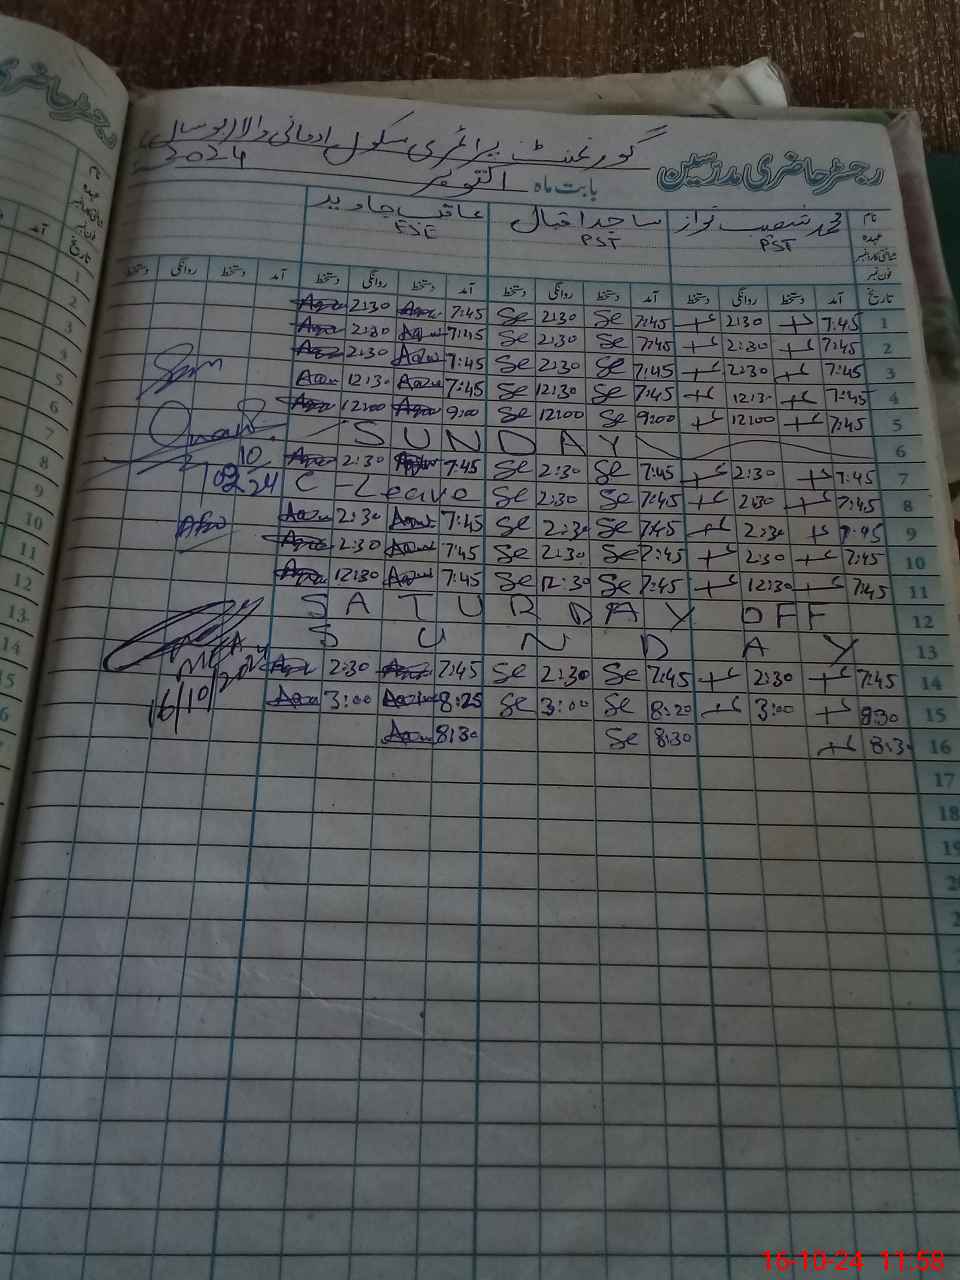 رجسٹر حاضری مدرسین
گورنمنٹ پرائمری سکول
بابت ماہ اکتوبر 2024
نام محمد شعیب نواز ساجد اقبال عاقب جاوید
عہدہ PST PST ESE
شناختی کارڈ نمبر
فون نمبر
تاریخ آمد دستخط روانگی دستخط آمد دستخط روانگی دستخط آمد دستخط روانگی دستخط آمد دستخط روانگی دستخط
1 7:45 2:30 7:45 Se 2:30 Se 7:45 2:30
2 7:45 2:30 7:45 Se 2:30 Se 7:45 2:30
3 7:45 2:30 7:45 Se 2:30 Se 7:45 2:30
4 7:45 12:30 7:45 Se 12:30 Se 7:45 12:30
5 7:45 12:00 9:00 Se 12:00 Se 9:00 12:00
6 SUNDAY
7 7:45 2:30 7:45 Se 2:30 Se 7:45 2:30
8 7:45 2:30 7:45 Se 2:30 Se C-Leave
9 7:45 2:30 7:45 Se 2:30 Se 7:45 2:30
10 7:45 2:30 7:45 Se 2:30 Se 7:45 2:30
11 7:45 12:30 7:45 Se 12:30 Se 7:45 12:30
12 SATURDAY OFF
13 SUNDAY
14 7:45 2:30 7:45 Se 2:30 Se 7:45 2:30
15 8:30 3:00 8:20 Se 3:00 Se 8:25 3:00
16 8:30 8:30 Se 8:30
17
18
MEA
16/10/2024
16-10-24 11:58